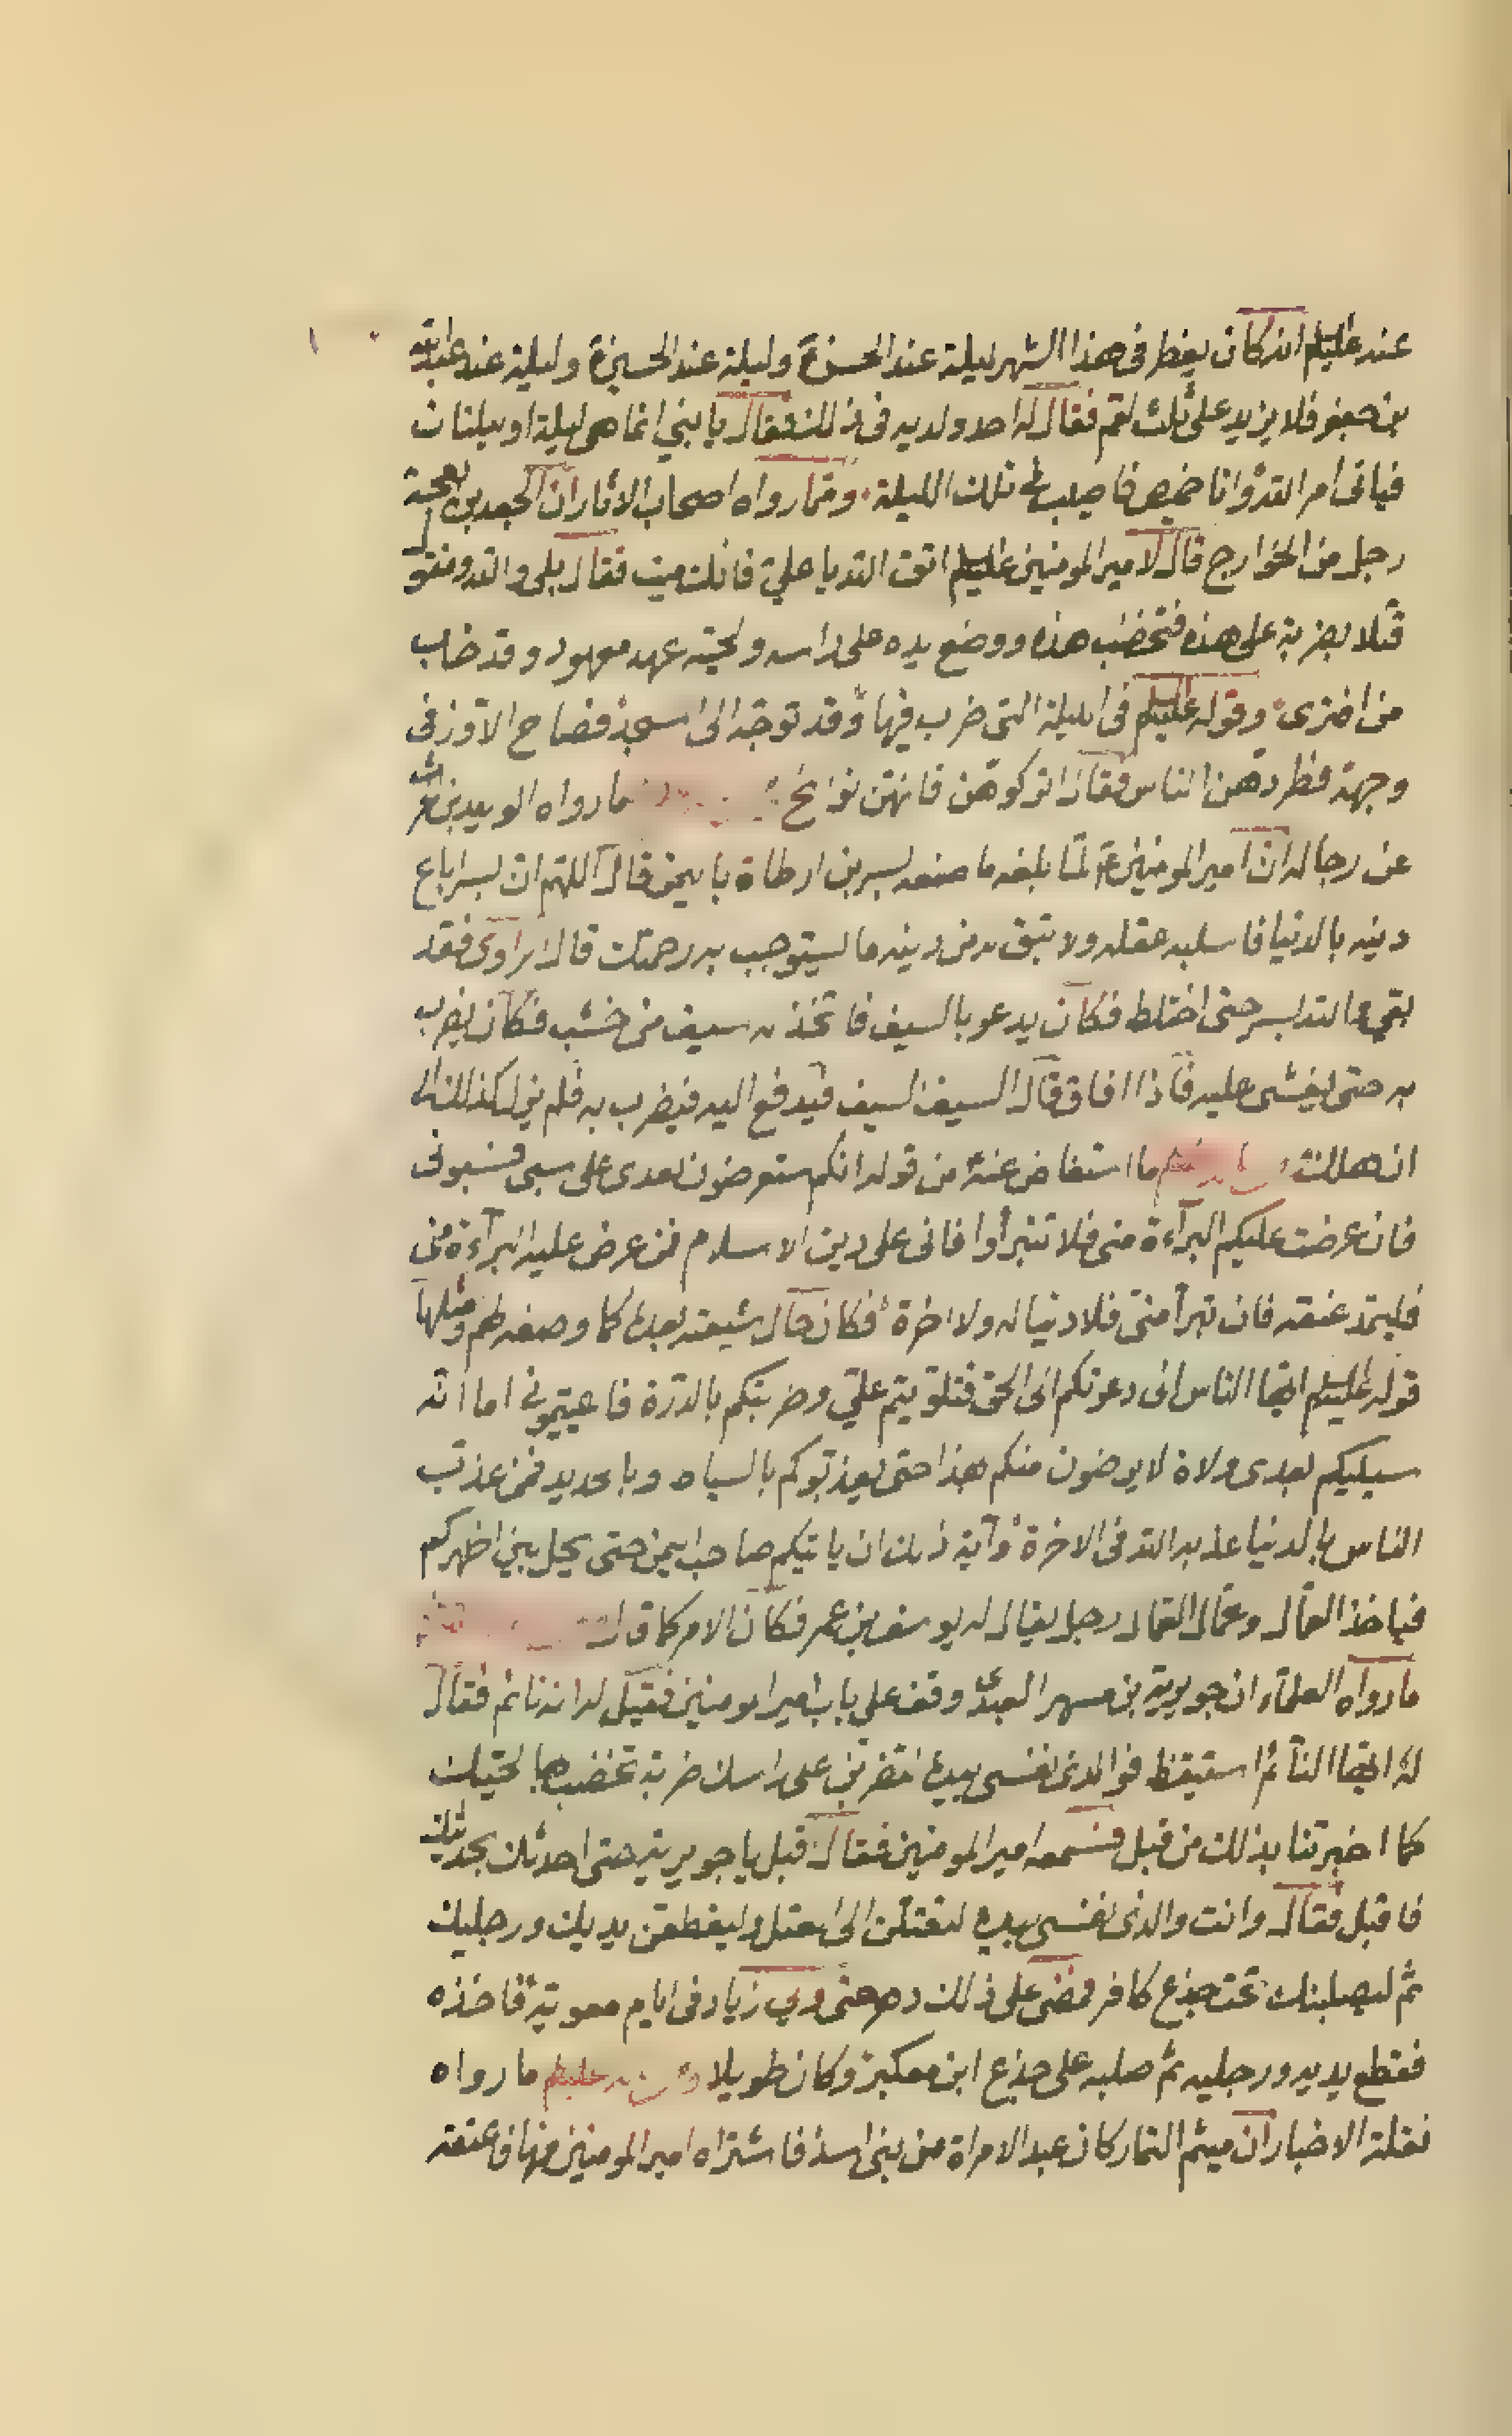 عند عليلم انه كان يفطر فى هذا الشهر ليلة عند الحسن ع وليلة عند الحسين ع وليلة عند عبدالله
بن جعفر فلا يزيد على ثلث لقم فقال له احد ولديه فى ذلك فقال يا بني انما هى ليلة او ليلتان
فياتى امر الله وانا خميص فاصيب فى تلك الليلة ومما رواه اصحاب الاثار ان الجعد بن بعجة
رجل من الخوارج قال لامير المومنين عليلم اتق الله يا علي فانك ميت فقال بلى والله ومقتول
قتلا بضربة على هذه فتخضب هذه ووضع يده على راسه ولحيته عهد معهود وقد خاب
من افترى وقوله عليلم فى الليلة التى ضرب فيها وقد توجه الى المسجد فصاح الاوز فى
وجهه فطردهن الناس فقال اتركوهن فانهن نوائح ما رواه الوليد بن
عن رجاله ان امير المومنين ع لما بلغه ما صنعه بسر بن ارطاة باليمن قال اللهم ان بسرا باع
دينه بالدنيا فاسلبه عقله ولا تبق له من دينه ما يستوجب به رحمتك قال الراوى فقد
بقى والله بسر حتى اختلط فكان يدعو بالسيف فاتخذ له سيف من خشب فكان يضرب
به حتى يغشى عليه فاذا افاق قال السيف السيف فيدفع اليه فيضرب به فلم يزل كذلك الى
ان هلك ما استفاض عنه من قوله انكم ستعرضون بعدى على سبى فسبونى
فان عرضت عليكم البراءة منى فلا تتبرأوا فانى على دين الاسلام فمن عرض عليه البراءة منى
فليمد عنقه فان تبرأ منى فلا دنيا له ولا اخرة فكان حال شيعته بعده كما وصفه لهم ومثلها
قوله عليلم ايها الناس انى دعوتكم الى الحق فتلويتم علي وضربتكم بالدرة فاعييتمونى اما انه
سيليكم بعدى ولاة لا يرضون منكم بهذا حتى يعذبوكم بالسياط وبالحديد فمن عذب
الناس بالدنيا عذبه الله فى الاخرة وآية ذلك ان ياتيكم صاحب اليمن حتى يحل بين اظهركم
فياخذ العمال وعمال العمال رجل يقال له يوسف بن عمر فكان الامر كما قال
ما رواه العلماء ان جويرية بن مسهر العبدى وقف على باب امير المومنين فقيل له انه نائم فقال
له ايها النائم استيقظ فوالذى نفسى بيده لتضربن على راسك ضربة تخضب بها لحيتك
كما اخبرتنا بذلك من قبل فسمعه امير المومنين فقال اقبل يا جويرية حتى احدثك بحديثك
فاقبل فقال وانت والذى نفسى بيده لتعتلن الى العتل وليقطعن يديك ورجليك
ثم ليصلبنك تحت جذع كافر فمضى على ذلك دهر حتى ولى زياد فى ايام معوية فاخذه
فقطع يديه ورجليه ثم صلبه على جذع ابن معكبر وكان طويلا ما رواه
نقلة الاخبار ان ميثم التمار كان عبدا لامراة من بنى اسد فاشتراه امير المومنين منها فاعتقه